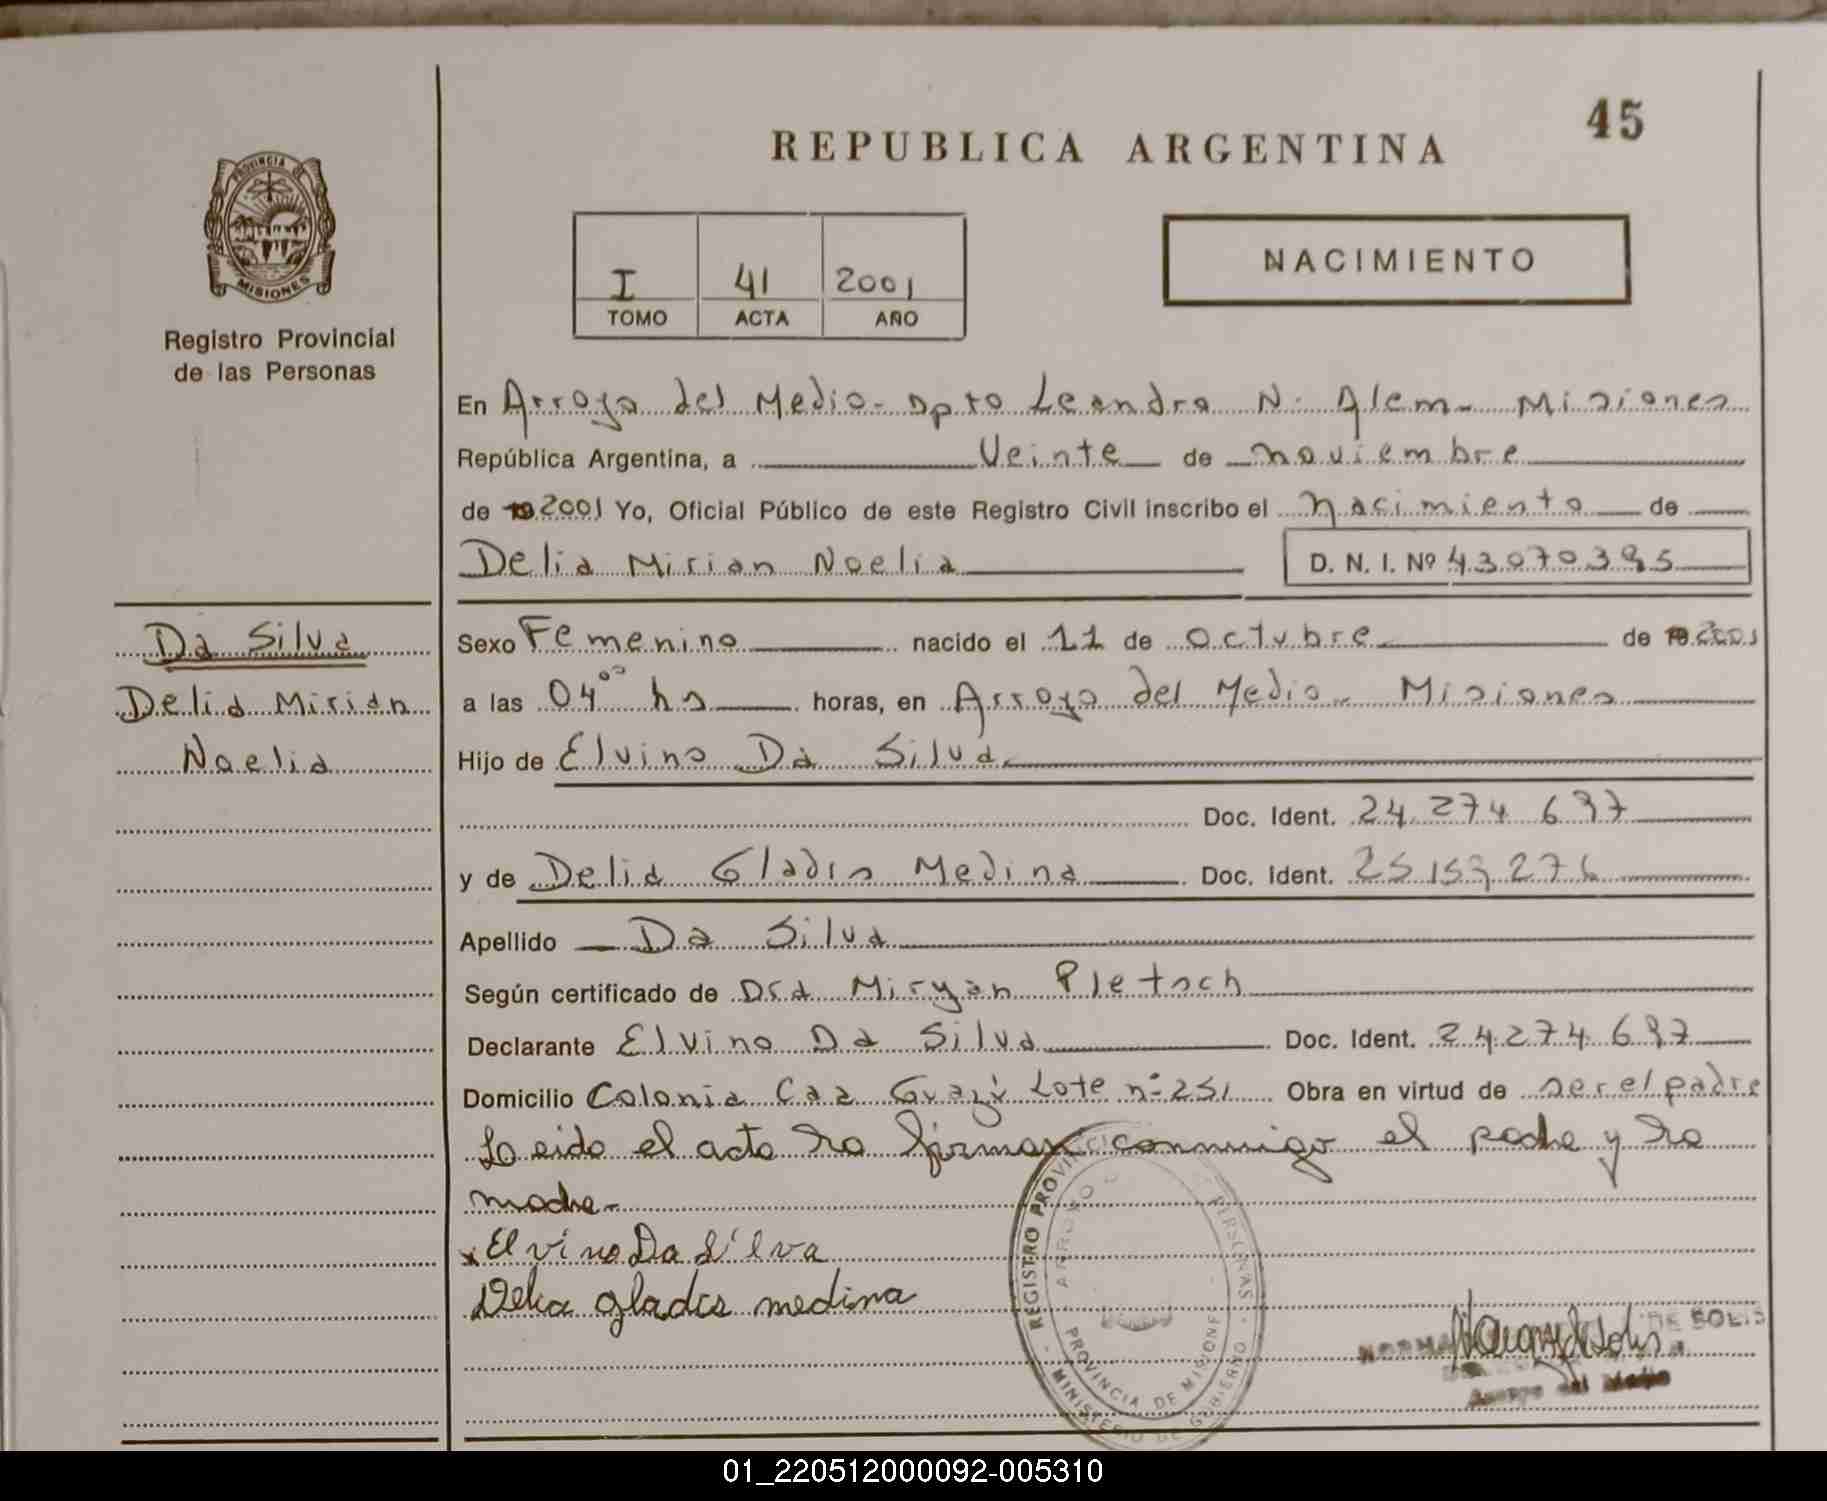 45
REPUBLICA ARGENTINA
PROVINCIA DE
MISIONES
Registro Provincial
de las Personas
I 41 2001
TOMO ACTA AÑO
NACIMIENTO
En Arroyo del Medio - Dpto Leandro N. Alem - Misiones
República Argentina, a Veinte de noviembre
de 19 2001 Yo, Oficial Público de este Registro Civil inscribo el nacimiento de
Delia Mirian Noelia D. N. I. Nº 43070395
Da Silva
Delia Mirian
Noelia
Sexo Femenino nacido el 11 de octubre de 19 2001
a las 04 00 hs horas, en Arroyo del Medio - Misiones
Hijo de Elvino Da Silva
Doc. Ident. 24.274.697
y de Delia Gladis Medina Doc. Ident. 25.159.276
Apellido Da Silva
Según certificado de Dra Miryan Pletsch
Declarante Elvino Da Silva Doc. Ident. 24.274.697
Domicilio Colonia Caa Guazú Lote nº 251 Obra en virtud de ser el padre
Leido el acta la firman conmigo el padre y la
madre-
x Elvino Da Silva
Delia gladis medina
REGISTRO PROVINCIAL PERSONAS
ARROYO
PROVINCIA DE MISIONES
MINISTERIO DE GOBIERNO
NORMA DE SOLIS
Arroyo del Medio
01_220512000092-005310